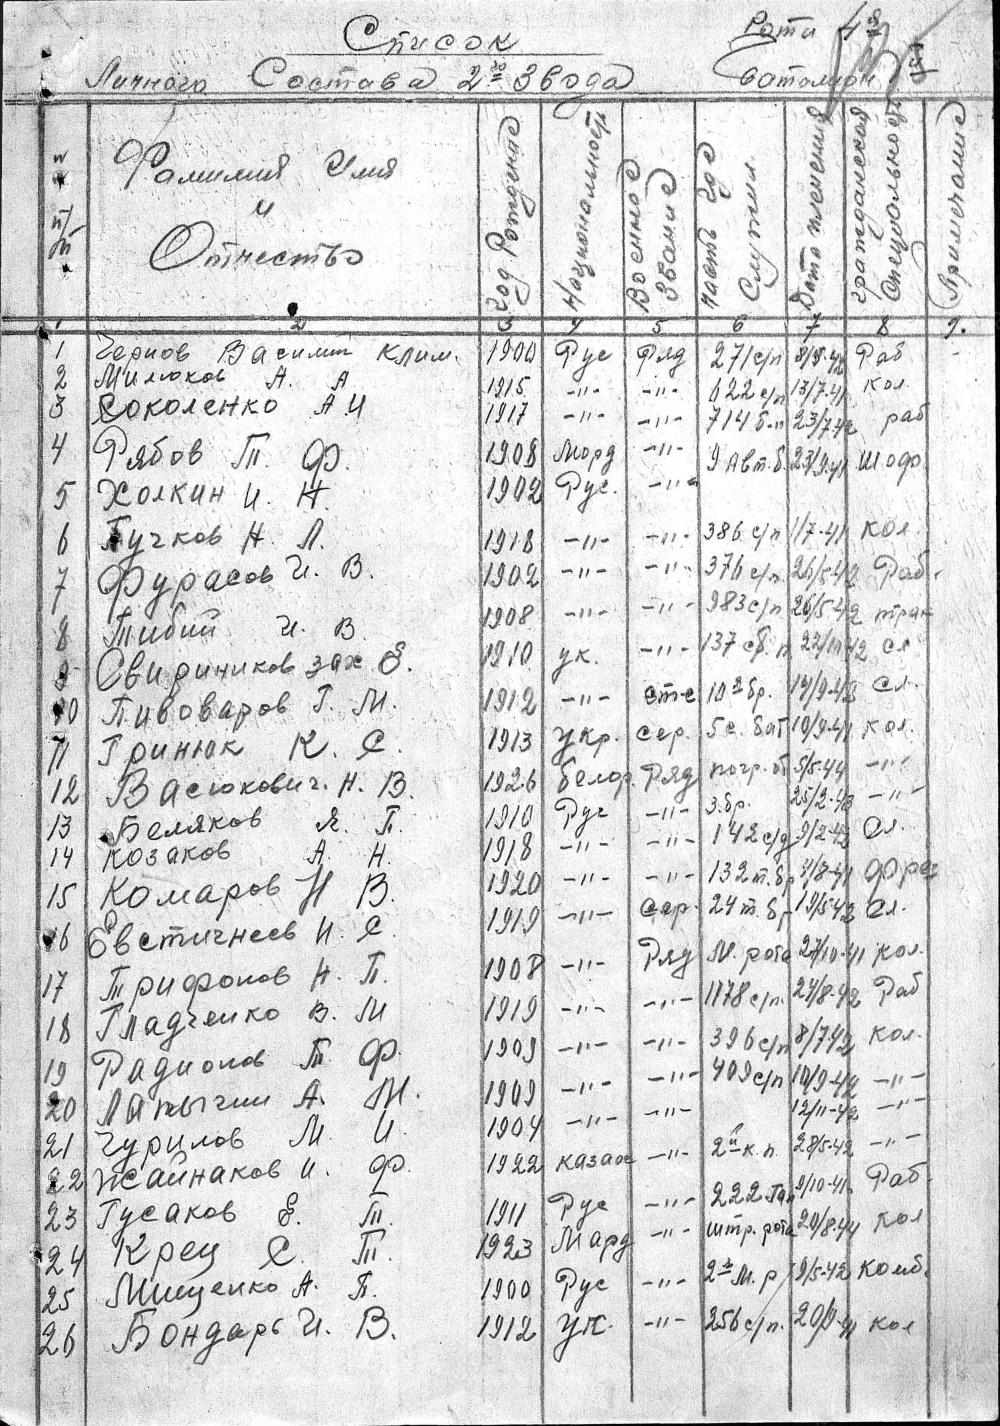 Список
Рота 4я
Личного Состава 2го Звода
баталион
№ п/п
Фамилия Имя и Отчество
Год Рождение
Национальность
Военное Звание
часть где Служил
Дата пленения
гражданская Специальность
Примечание
1 2 3 4 5 6 7 8 9.
1 Чернов Василий Клим. 1900 Рус Ряд 271 с/п Раб -
2 Милюков А. А 1915 -"- -"- 622 с/п 13/7-41 кол.
3 Соколенко А И 1917 -"- -"- 714 б-п 23/7-42 раб
4 Рябов Т. Ф. 1908 Морд -"- 9 Авт. б. 23/9-41 шофр
5 Холкин И. Н. 1902 Рус. -"-
6 Пучков Н. Л. 1918 -"- -"- 386 с/п 1/7-41 кол.
7 Фурасов И. В. 1902 -"- -"- 376 с/п 26/5-42 Раб.
8 Тибий И. В 1908 -"- -"- 983 с/п 26/5-42 трак
9 Свириников зах Е. 1910 ук. -"- 137 сб. п. сл
10 Пивоваров Г. М. 1912 -"- ст-с 10я бр. сл.
11 Гринюк К. С. 1913 укр. сер. 5 с. бат 10/9-41 кол.
12 Васюкович. Н. В. 1926 белор. Ряд погр. от 5/5-44 -"-
13 Беляков Я. П. 1910 Рус -"- 3. бр. 25/2-43 -"-
14 Козаков А. Н. 1918 -"- -"- 142 с/д 9/2-43 Сл.
15 Комаров Н В. 1920 -"- -"- 132 т. бр 4/8-41 фрез
16 Евстигнеев И. С. 1919 -"- сер. 24 т. бр 19/5-42 Сл.
17 Трифонов Н. П. 1908 -"- Ряд М. рота 27/10-41 кол.
18 Гладченко В. М 1919 -"- -"- 1178 с/п. 24/8-42 Раб
19 Радионов Т Ф. 1909 -"- -"- 396 с/п 8/7-42 кол.
20 Лапычин А. М. 1909 -"- -"- 409 с/п 10/9-42 -"-
21 Чурилов М. И. 1904 -"- -"- 12/11-42 -"-
22 Жайнаков И. Ф. 1922 казах -"- 2й к. п. 28/5-42 -"-
23 Гусаков Е. Т. 1911 Рус -"- 222 Гап 9/10-41. Раб.
24 Крец С. Т. 1923 Мард -"- штр. рота 20/8-44 кол
25 Мищенко А. П. 1900 Рус -"- 2я М. р 19/5-42 комб.
26 Бондарь И. В. 1912 ук. -"- 256 с/п. 20/9-41 кол